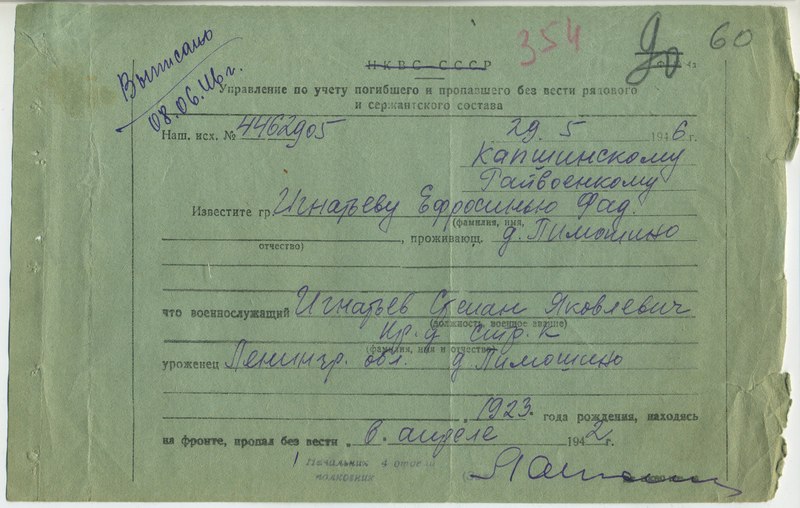 354
60
Выписано
08.06.46г.
НКВС-СССР
Управление по учету погибшего и пропавшего без вести рядового
и сержантского состава
Наш. исх. № 4462905 29. 5 1946 г.
Капшинскому
Райвоенкому
Известите гр. Игнатьеву Ефросинью Фад.
(фамилия, имя,
отчество) , проживающ. д. Пимошино
что военнослужащий Игнатьев Степан Яковлевич
(должность, военное звание)
кр-ц стр. к
(фамилия, имя и отчество)
уроженец Ленингр. обл. д Пимошино
1923. года рождения, находясь
на фронте, пропал без вести „ в апреле 1942 г.
Начальник 4 отдела
полковник